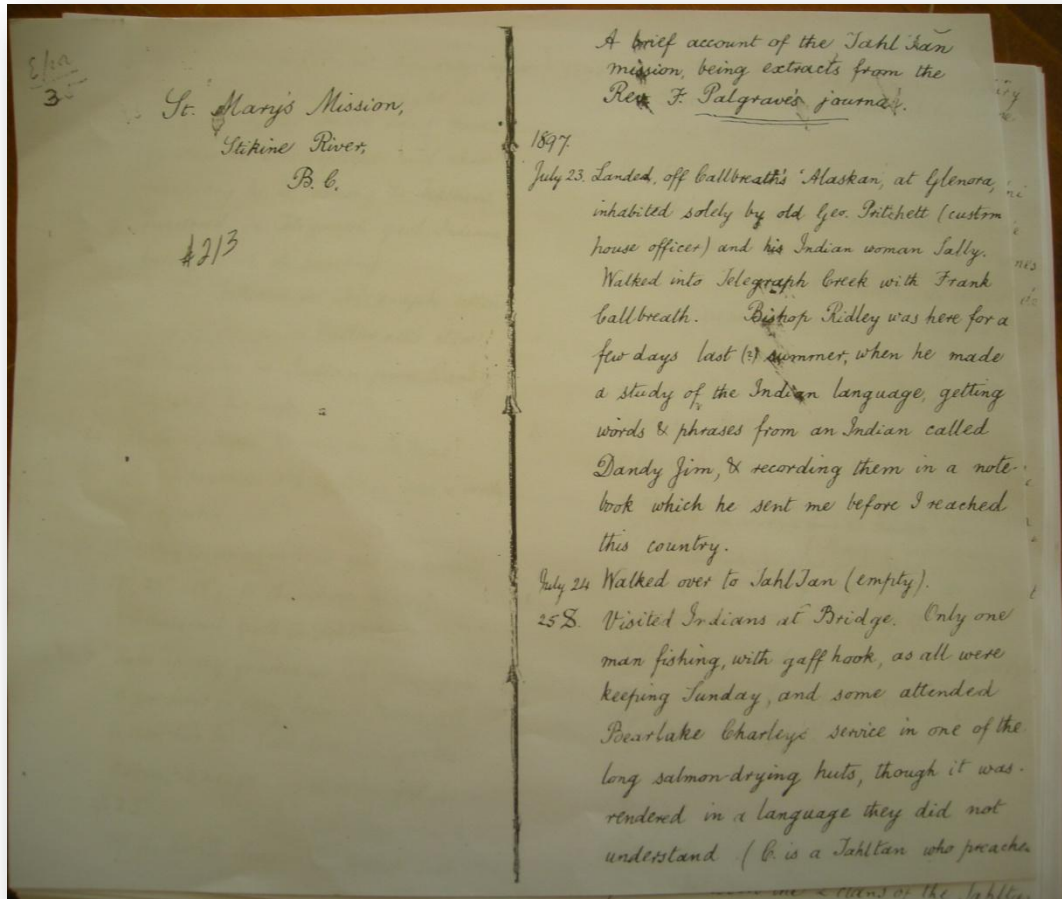 3
St. Mary's Mission,
Stikine River,
B.C.
#213
A brief account of the Tahl Tan
mission, being extracts from the
Rev. F. Palgrave's journal.
1897.
July 23. Landed, off Callbreath's 'Alaskan, at Glenora,
inhabited solely by old Geo. Pritchett (custom
house officer) and his Indian woman Sally.
Walked into Telegraph Creek with Frank
Callbreath. Bishop Ridley was here for a
few days last (?) summer, when he made
a study of the Indian language, getting
words & phrases from an Indian called
Dandy Jim, & recording them in a note-
book which he sent me before I reached
this country.
July 24 Walked over to TahlTan (empty).
25 S. Visited Indians at Bridge. Only one
man fishing, with gaff hook, as all were
keeping Sunday, and some attended
Bearlake Charley's service in one of the
long salmon-drying huts, though it was
rendered in a language they did not
understand (C. is a Tahltan who preaches